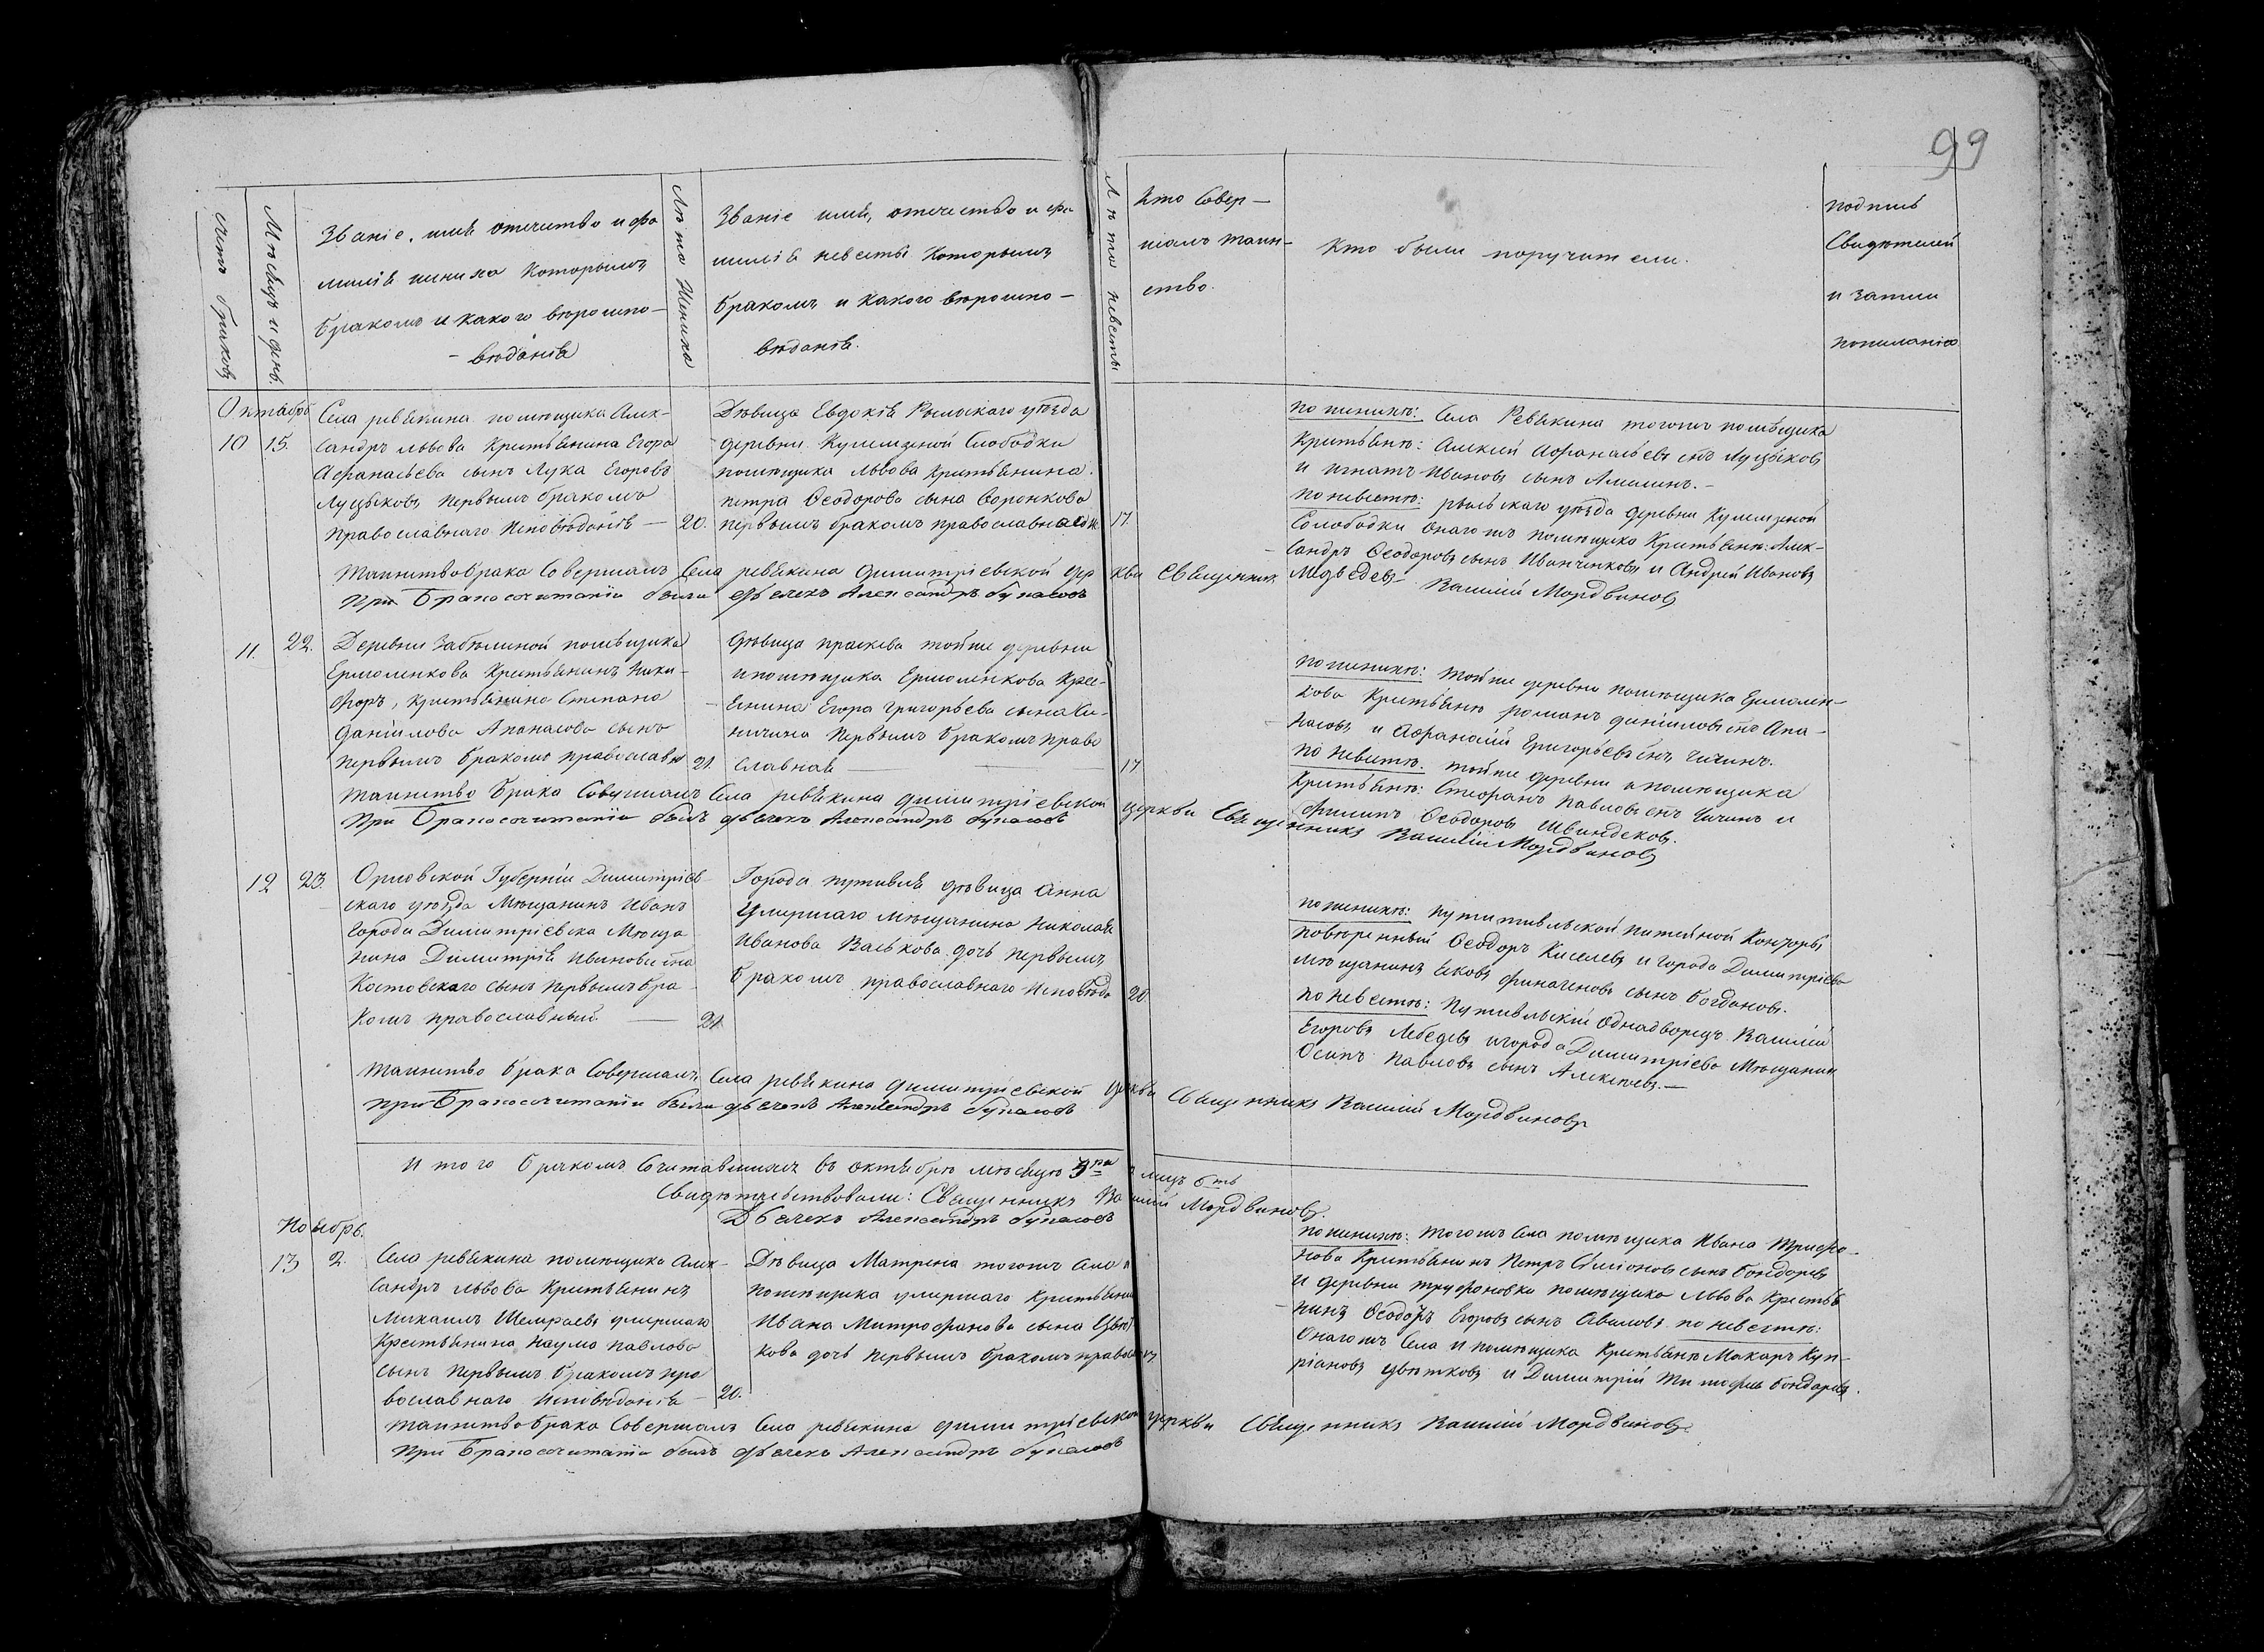 99
счетъ браковъ
Мѣсяцъ и день.
Званіе, имя отечество и фа
миліа жениха которымъ
бракомъ и какого вероиспо-
- вѣданіа
Лѣта Жениха
Званіе имя, отечество и фа
миліа невесты которымъ
бракомъ и какого вероиспо-
вѣданіа.
Лѣта невесты
Кто Совер-
шалъ таин-
ство.
Кто были поручители.
подпись
Свидѣтелей
и записи
пожеланію
Октябрь
10 15.
Села ревякина помѣщика Алек-
сандръ львова Крестьянина Егора
Афанасьева сынъ Лука Егоровъ
Луцыковъ первымъ бракомъ
православнаго Исповѣданія — 20.
Дѣвица Евдокія Рыльскаго уѣзда
деревни Кулемзиной Слободки
помѣщика львова крестьянина
петра Ѳеодорова сына Воронкова
первымъ бракомъ православна
17.
по женихѣ: Села Ревякина тогожъ помѣщика
Крестьяне: Алексій Афанасьевъ снъ Луцыковъ
и игнатъ Ивановъ сынъ Амелинъ. -
по невестѣ: рыльскаго уѣзда деревни Кулемзиной
Солободки онагожъ помѣщика Крестьяне: Алек-
сандръ Ѳеодоровъ сынъ Иванченковъ и Андрей Ивановъ
Медведевъ
Таинство брака Совершалъ Села ревякина димитріевской церкви Священникъ Василій Мордвиновъ
При Бракосочитаніи были дьячекъ Александръ булгаковъ
11. 22.
Деревни Забѣлиной помѣщика
Ермоленкова Крестьянинъ Ники-
форъ, крестьянина Степана
данілова Апанасова сынъ
первымъ бракомъ православн 21.
дѣвица праскева тойже деревни
ипомѣщика Ермоленкова Крес-
янина Егора Григорьева сына Чи-
чичина первымъ бракомъ право
славная —
17
по женихѣ: тойже деревни помѣщика Ермолен-
кова Крестьяне романъ даниловъ снъ Апа-
насовъ и Афанасій Григорьевъ снъ Чичинъ.
по невестѣ. тойже деревни и помѣщика
Крестьяне: Стефанъ Павловъ снъ Чичинъ и
филипъ Ѳеодоровъ Швиндековъ.
Таинство брака Совершалъ Села ревякина димитріевской церкви Священникъ Василій Мордвиновъ
При Бракосочитаніи былъ дьячекъ Александръ булгаковъ
12 23.
Орловской Губерніи Димитріев-
скаго уѣзда Мѣщанинъ Иванъ
города Димитріевска Мѣща
нина Димитрія Иванова сна
Костовскаго сынъ первымъ бра
комъ православный. — 21.
Города путивля дѣвица Анна
умершаго мѣщанина Николая
Иванова Васькова дочь первымъ
бракомъ православнаго исповѣда
20.
по женихѣ: путивльской питейной Конторы
повѣренный Ѳеодоръ Киселевъ и города Димитріева
мѣщанинъ Яковъ финагеновъ сынъ богдановъ.
по невестѣ: путивльскій Однадворецъ Василій
Егоровъ Лебедевъ и города Димитріева Мѣщанинъ
Осипъ Павловъ сынъ Алексѣевъ. —
Таинство брака Совершалъ Села ревякина димитріевской церкви Священникъ Василій Мордвиновъ
При Бракосочитаніи были дьячекъ Александръ булгаковъ
Итого бракомъ Сочитавшихся въ октябрѣ мѣсяцѣ 3ри лицъ 6ть
Свидѣтельствовали: Священникъ Василій Мордвиновъ.
Дьячекъ Александръ булгаковъ
Ноябрь.
13 2.
Села ревякина помѣщика Алек-
сандръ львова Крестьянинъ
Михаилъ Шемраевъ умершаго
Крестьянина Наума павлова
сынъ первымъ бракомъ пра
вославнаго исповѣданія — 20.
Дѣвица Матрена тогожъ села и
помѣщика умершаго Крестьянина
Ивана Митрофанова сына Цвѣт
кова дочь первымъ бракомъ православн
по женихѣ: тогожъ Села помѣщика Ивана Трифо-
нова Крестьянинъ Петръ Симіоновъ сынъ бондаревъ
и деревни трифоновки помѣщика львова Крестья
нинъ Ѳеодоръ Егоровъ сынъ Авиловъ по невестѣ:
Онагожъ Села и помѣщика Крестьяне Макаръ Куп-
ріановъ цвѣтковъ и Димитрій Тимофеевъ бондаревъ.
Таинство брака Совершалъ Села ревякина димитріевской церкви Священникъ Василій Мордвиновъ.
При Бракосочитаніи былъ дьячекъ Александръ булгаковъ